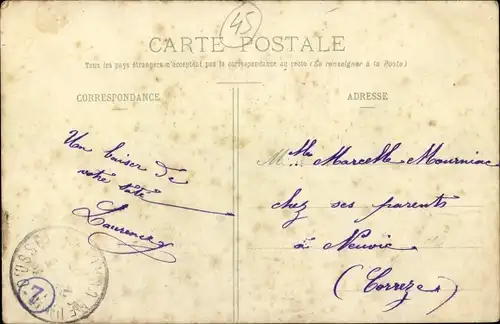 45
CARTE POSTALE
Tous les pays étrangers n'acceptent pas la correspondance au recto (Se renseigner à la Poste)
CORRESPONDANCE
ADRESSE
Un baiser de
votre tâta
Laurence
Mlle Marcelle Mourniac
chez ses parents
à Neuvic
(Correze)